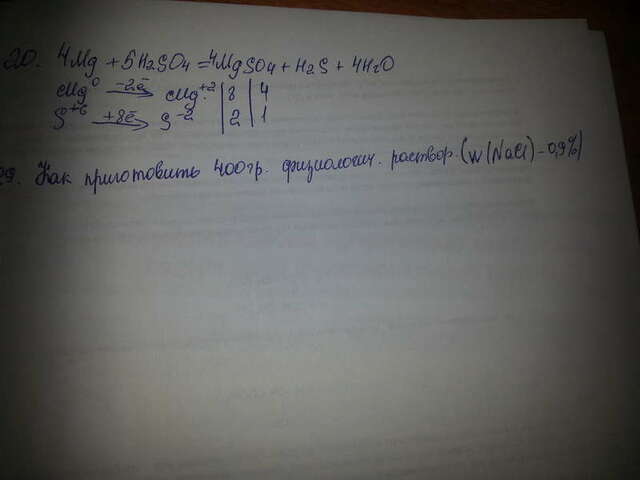 20. 4Mg + 5H2SO4 = 4MgSO4 + H2S + 4H2O
Mg⁰ —-2ē→ Mg⁺² | 8 | 4
S⁺⁶ —+8ē→ S⁻² | 2 | 1
29. Как приготовить 400гр. физиологич. раствор. (W(NaCl) - 0,9%)